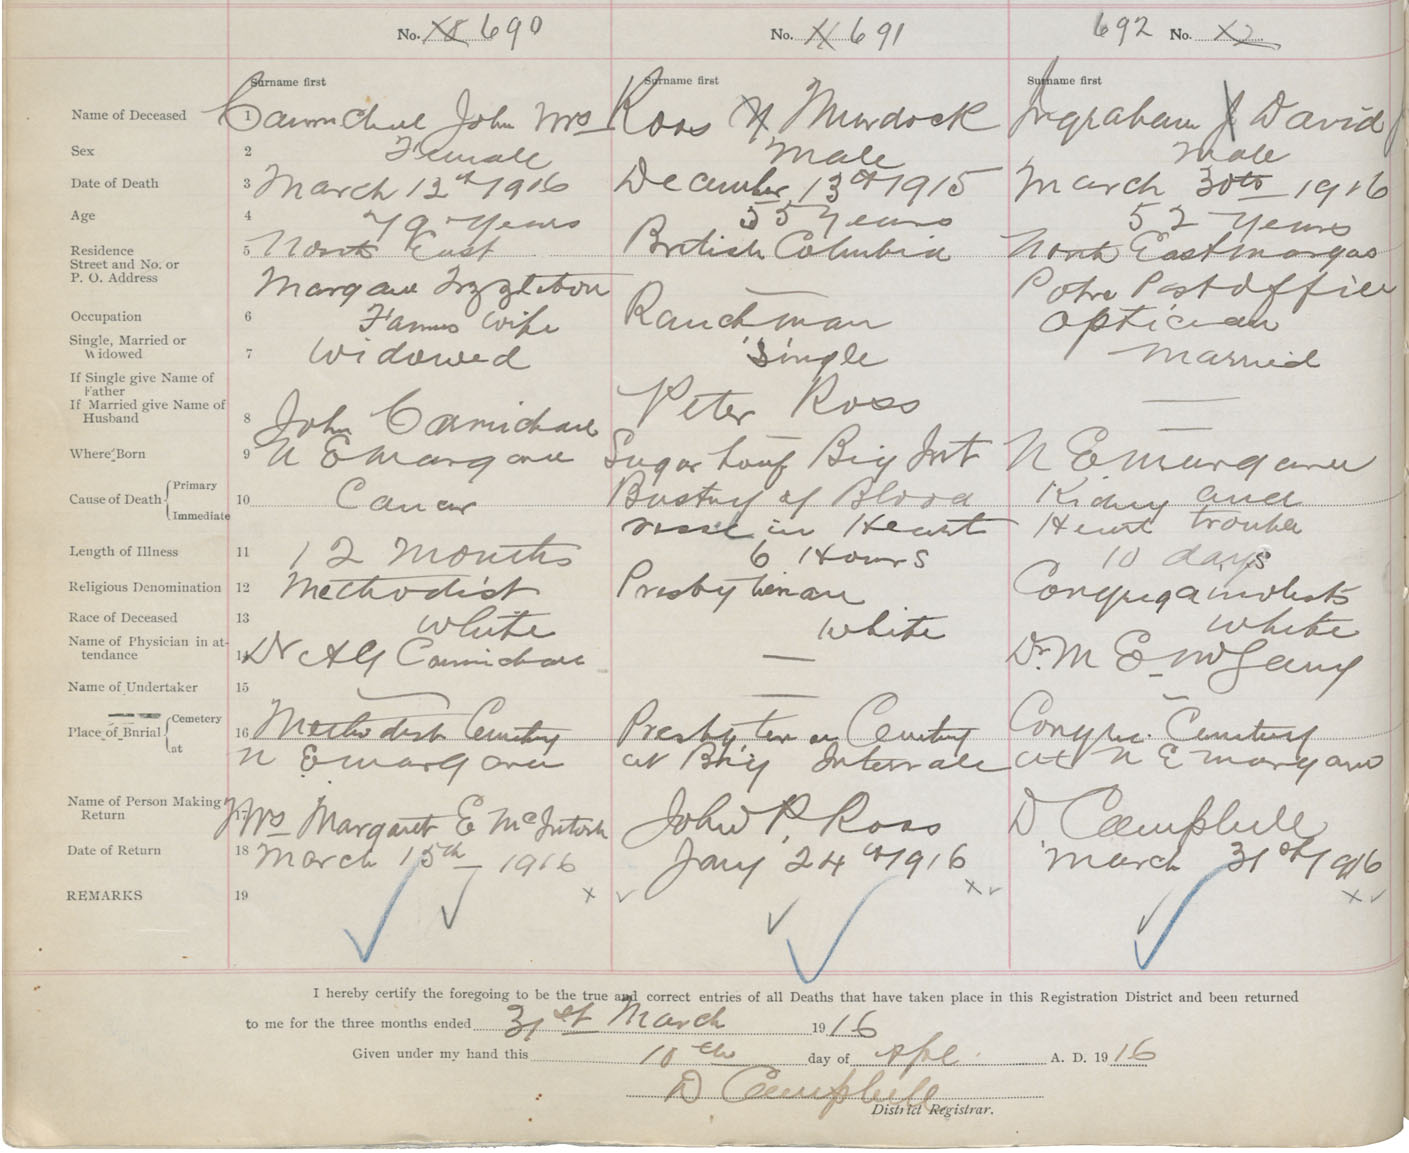 No. 690
No. 691
692 No.
Surname first
Surname first
Surname first
Name of Deceased 1 Carmichael John Mrs
Ross Murdock
Ingraham J David
Sex 2 Female
Male
Male
Date of Death 3 March 12th 1916
December 13th 1915
March 30th 1916
Age 4 79 Years
55 Years
52 Years
Residence
Street and No. or
P. O. Address
5 North East
Margaree
British Columbia
North East Margaree
Post Office
Occupation 6 Farmers wife
Ranchman
Optician
Single, Married or
Widowed
7 Widowed
Single
Married
If Single give Name of
Father
If Married give Name of
Husband
8 John Carmichael
Peter Ross
—
—
Where Born 9 N E Margaree
Big Int
N E Margaree
Cause of Death { Primary
Immediate
10 Cancer
Bursting of Blood
in Heart
Kidney and
Heart trouble
Length of Illness 11 12 Months
6 Hours
10 days
Religious Denomination 12 Methodist
Presbyterian
Race of Deceased 13 White
White
White
Name of Physician in at-
tendance
14 Dr A G Carmichael
—
Dr. M E
Name of Undertaker 15
—
—
Place of Burial { Cemetery
at
16 Methodist Cemetery
N E Margaree
Presbyterian Cemetery
at Big Intervale
Cemetery
at N E Margaree
Name of Person Making
Return
17 Mrs Margaret E McIntosh
John P. Ross
D Campbell
Date of Return 18 March 15th 1916
Jany 24th 1916
March 31st 1916
REMARKS 19
I hereby certify the foregoing to be the true and correct entries of all Deaths that have taken place in this Registration District and been returned
to me for the three months ended 31st March 1916
Given under my hand this 10th day of Apl. A. D. 1916
D Campbell
District Registrar.